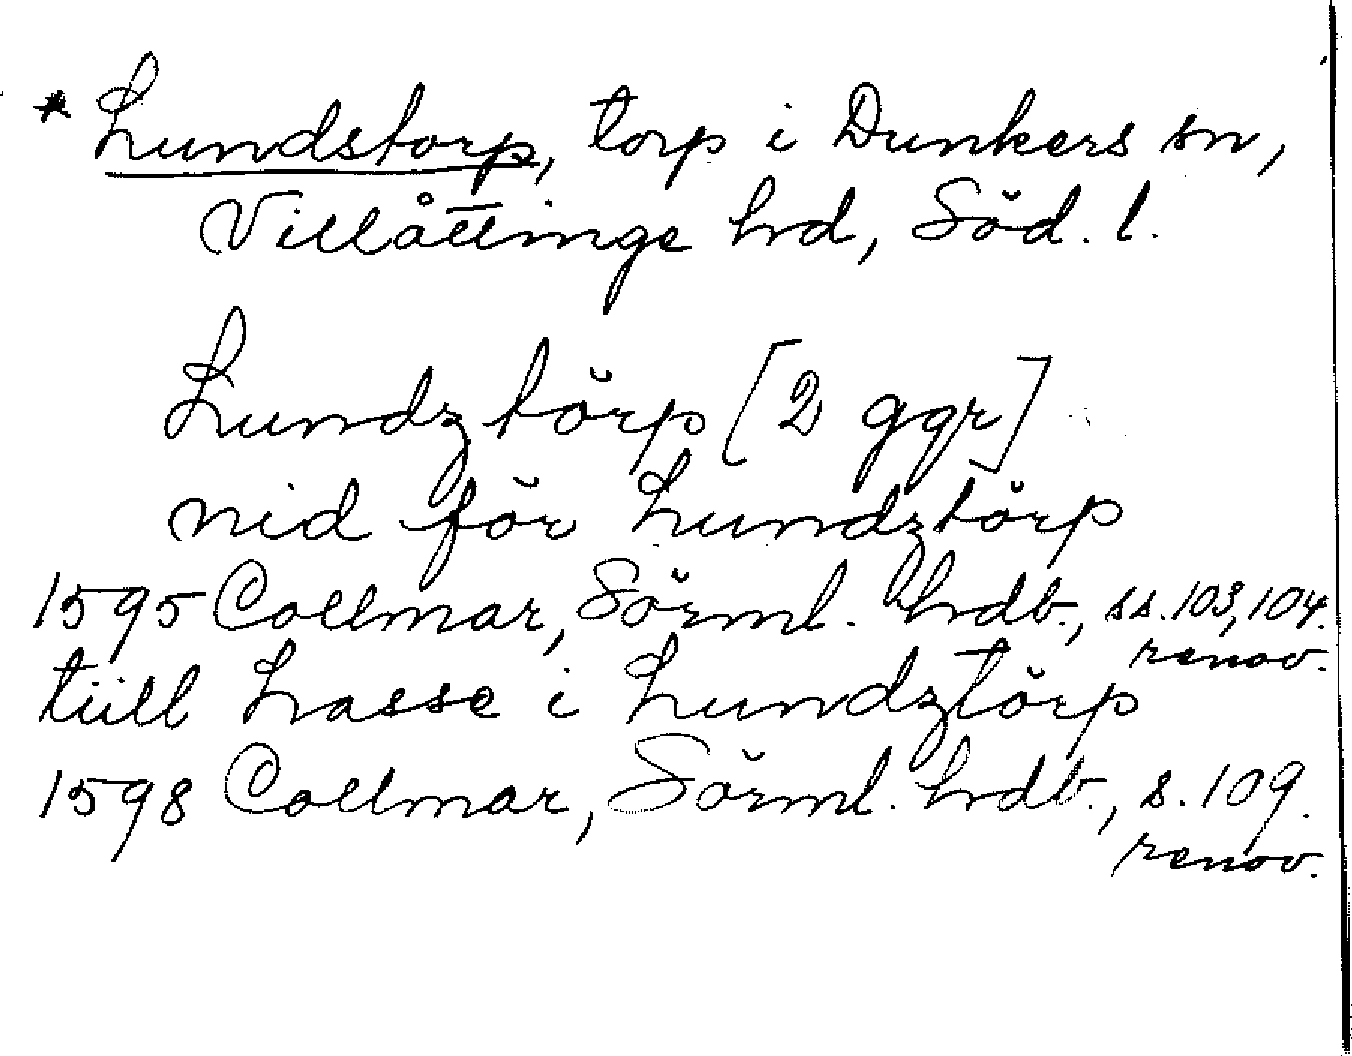 * Lundstorp, torp i Dunkers sn,
Villåttinge hd, Söd. l.
Lundztörp [2 ggr]
nid för Lundztörp
1595 Collmar, Sörml. hdb., ss. 103, 104.
renov.
tüll Lasse i Lundztörp
1598 Collmar, Sörml. hdb., s. 109.
renov.